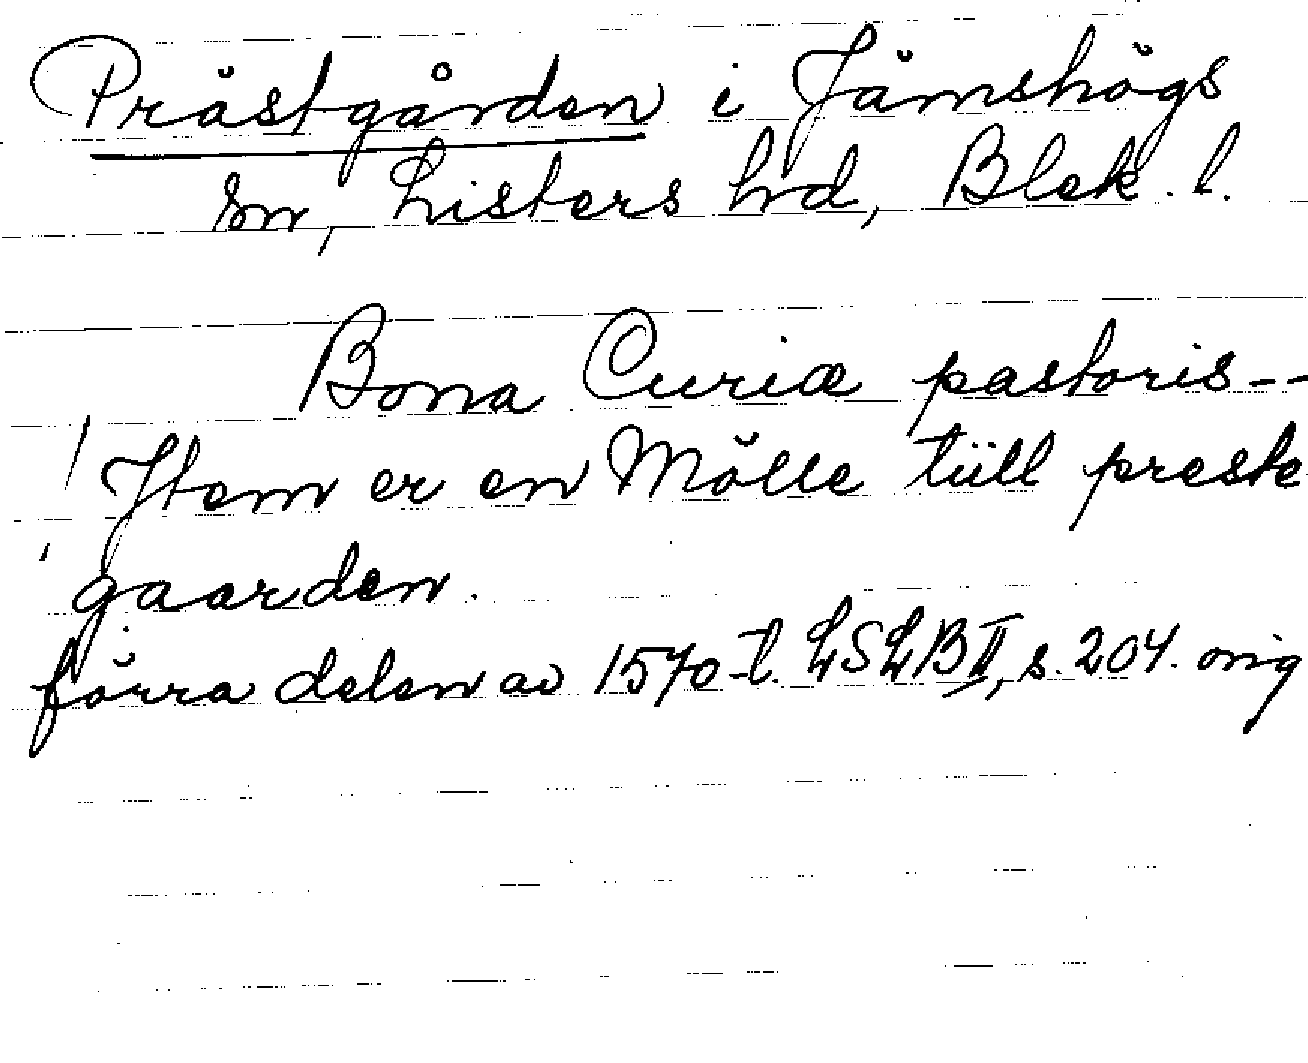 Prästgården i Jämshögs
sn, Listers hd, Blek. l.
Bona Curiæ pastoris--
Jtem er en Mölle tüll preste
gaarden.
förra delen av 1570-t. LSLB II, s. 204. orig